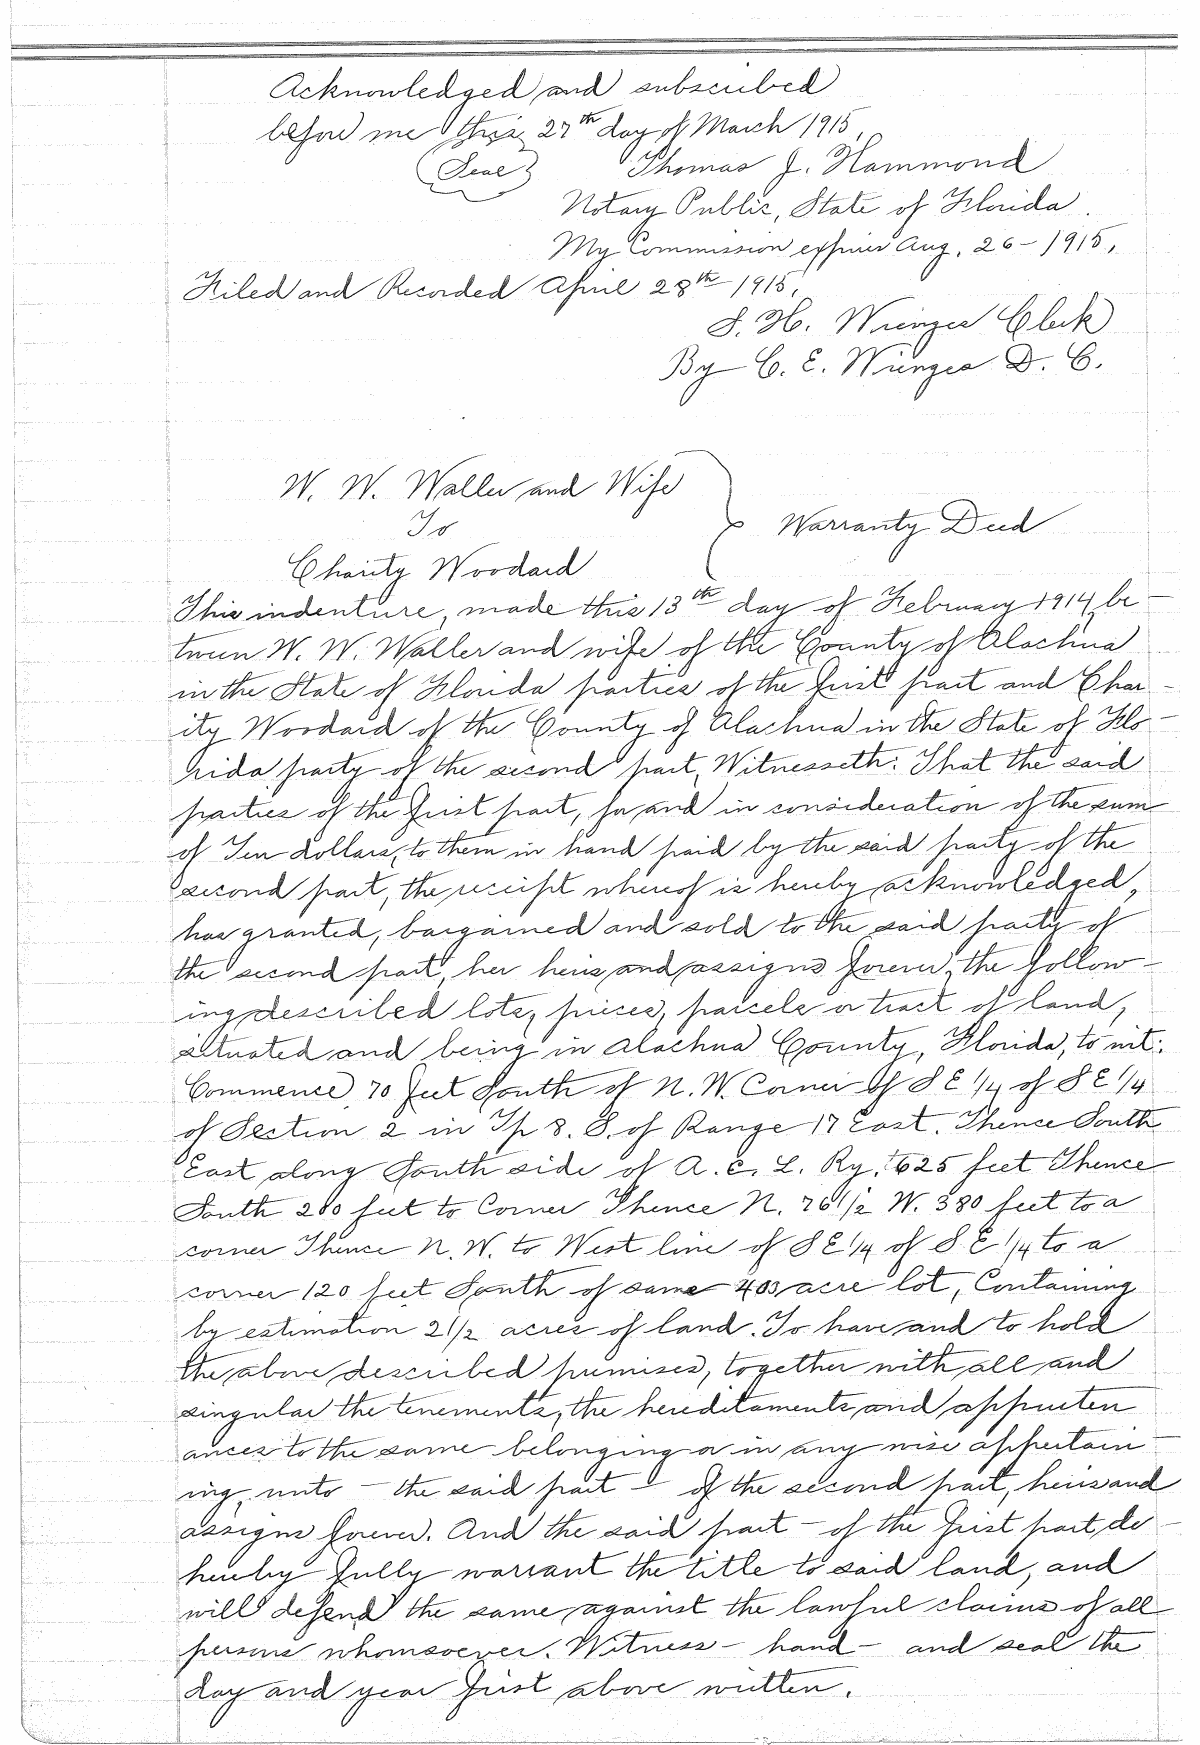 Acknowledged and subscribed
before me this 27th day of March 1915,
(Seal) Thomas J. Hammond
Notary Public, State of Florida.
My Commission expires Aug. 26 - 1915,
Filed and Recorded April 28th 1915,
S. H. Wienges Clerk
By C. E. Wienges D. C.
W. W. Waller and Wife
To
Warranty Deed
Charity Woodard
This indenture, made this 13th day of February 1914, be-
tween W. W. Waller and wife of the County of Alachua
in the State of Florida parties of the first part and Char-
ity Woodard of the County of Alachua in the State of Flo-
rida party of the second part, Witnesseth: That the said
parties of the first part, for and in consideration of the sum
of Ten dollars, to them in hand paid by the said party of the
second part, the receipt whereof is hereby acknowledged,
has granted, bargained and sold to the said party of
the second part, her heirs and assigns forever, the follow-
ing described lots, pieces, parcels or tract of land,
situated and being in Alachua County, Florida, to wit:
Commence 70 feet South of N. W. Corner of S E 1/4 of S E 1/4
of Section 2 in Tp 8. S. of Range 17 East. Thence South
East along South side of A. C. L. Ry. 625 feet Thence
South 210 feet to Corner Thence N. 76 1/2 W. 380 feet to a
corner Thence N. W. to West line of S E 1/4 of S. E 1/4 to a
corner 120 feet South of same acre lot, Containing
by estimation 2 1/2 acres of land. To have and to hold
the above described premises, together with all and
singular the tenements, the hereditaments and appurten
ances to the same belonging or in any wise appertain-
ing, unto - the said part - of the second part, heirs and
assigns forever. And the said part - of the first part, do -
hereby fully warrant the title to said land, and
will defend the same against the lawful claims of all
persons whomsoever. Witness - hand - and seal the
day and year first above written.